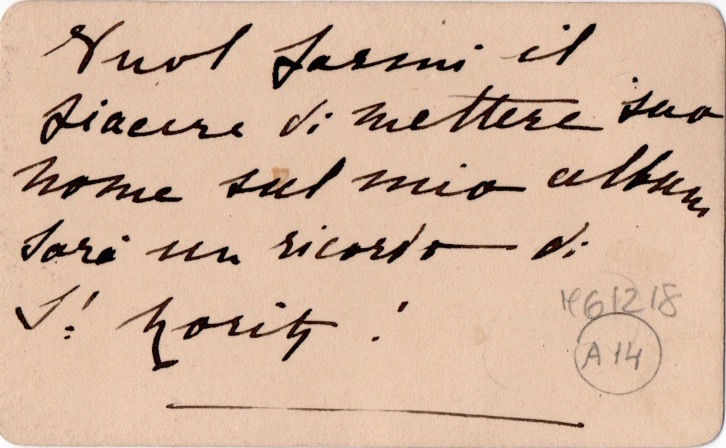 Vuol farmi il
piacere di mettere suo
nome sul mio album
sarà un ricordo di
St Moritz !
461218
A14